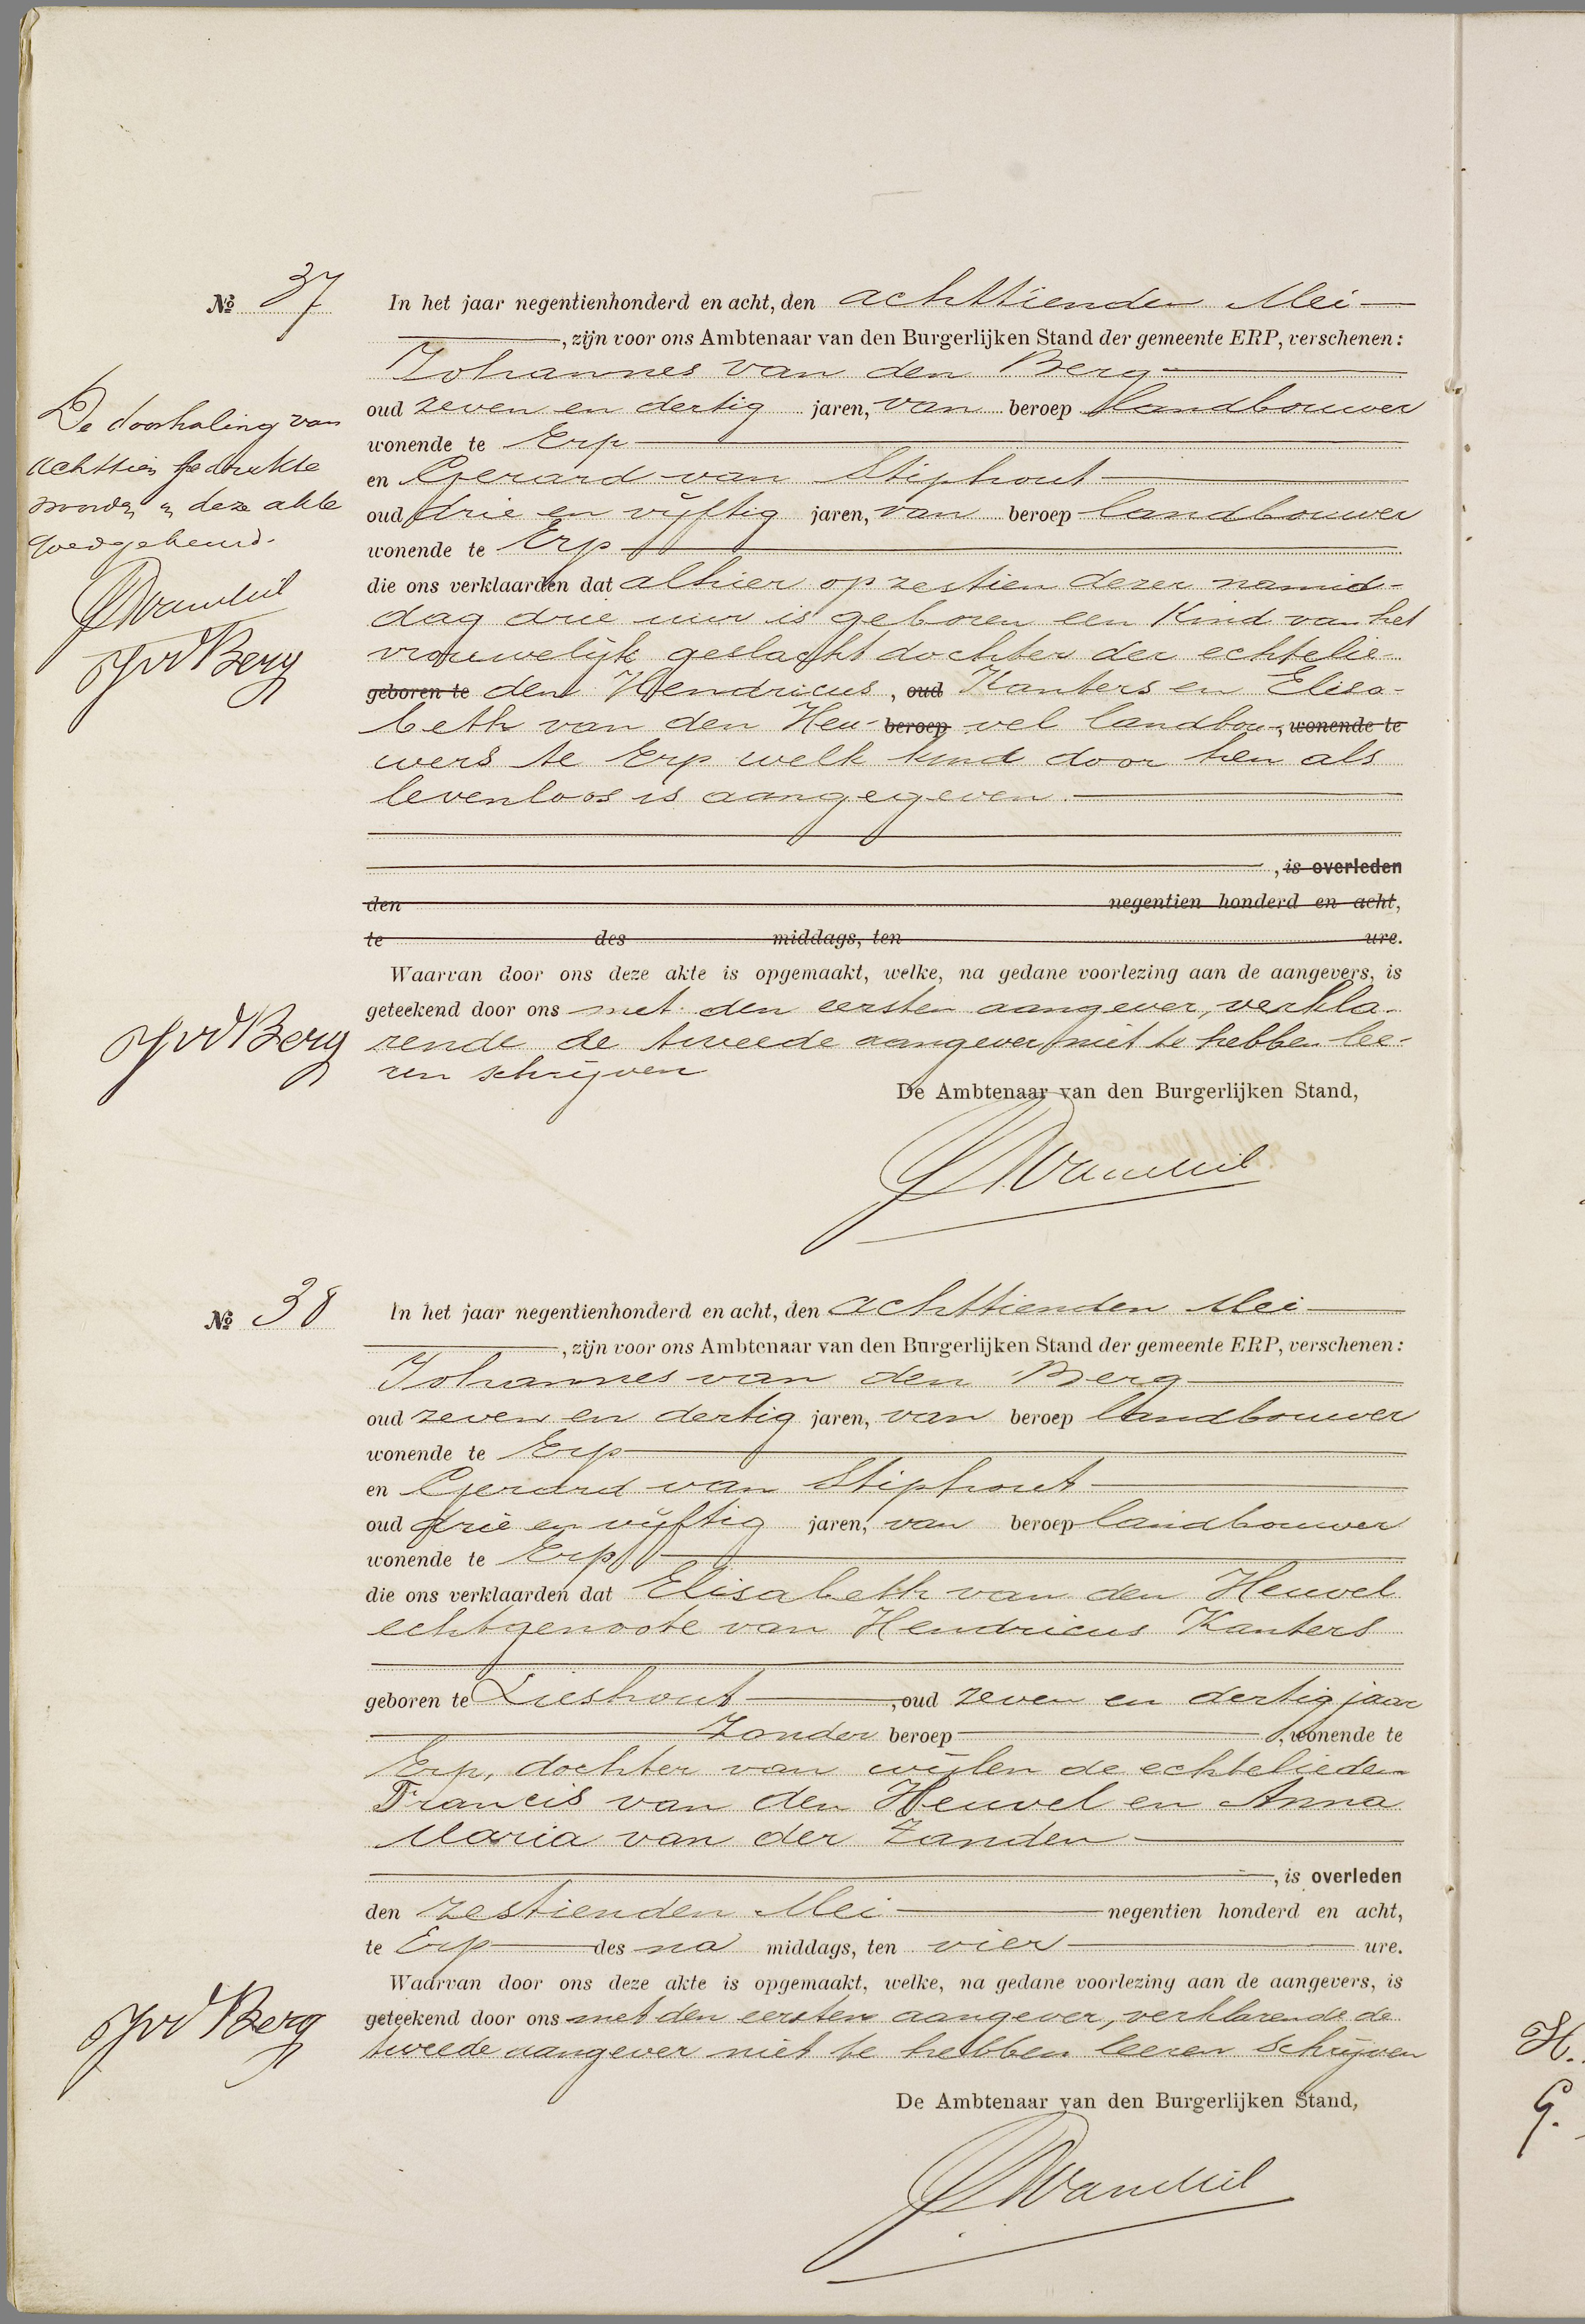 No 37
In het jaar negentienhonderd en acht, den achttienden Mei
, zijn voor ons Ambtenaar van den Burgerlijken Stand der gemeente ERP, verschenen:
Johannes van den Berg
oud zeven en dertig jaren, van beroep landbouwer
wonende te Erp
en Gerard van Stiphout
oud drie en vijftig jaren, van beroep landbouwer
wonende te Erp
die ons verklaarden dat alhier op zestien dezer namid-
dag drie uur is geboren een Kind van het
vrouwelijk geslacht dochter der echtelie-
geboren te den Hendricus , oud Kanters en Elisa-
beth van den Heu- beroep vel landbou-, wonende te
wers te Erp welk kind door hen als
levenloos is aangegeven.
, is overleden
den negentien honderd en acht,
te des middags, ten ure.
Waarvan door ons deze akte is opgemaakt, welke, na gedane voorlezing aan de aangevers, is
geteekend door ons met den eersten aangever, verkla-
rende de tweede aangever niet te hebben lee-
ren schrijven
De Ambtenaar van den Burgerlijken Stand,
De doorhaling van
achttien gedrukte
woorden in deze akte
goedgekeurd.
van Mil
J v d Berg
J v d Berg
van Mil
No 38
In het jaar negentienhonderd en acht, den achttienden Mei
, zijn voor ons Ambtenaar van den Burgerlijken Stand der gemeente ERP, verschenen:
Johannes van den Berg
oud zeven en dertig jaren, van beroep landbouwer
wonende te Erp
en Gerard van Stiphout
oud drie en vijftig jaren, van beroep landbouwer
wonende te Erp
die ons verklaarden dat Elisabeth van den Heuvel
echtgenoote van Hendricus Kanters
geboren te Lieshout , oud zeven en dertig jaar
Zonder beroep , wonende te
Erp, dochter van wijlen de echtelieden
Francis van den Heuvel en Anna
Maria van der Zanden
, is overleden
den zestienden Mei negentien honderd en acht,
te Erp des na middags, ten vier ure.
Waarvan door ons deze akte is opgemaakt, welke, na gedane voorlezing aan de aangevers, is
geteekend door ons met den eersten aangever, verklarende de
tweede aangever niet te hebben leeren schrijven
De Ambtenaar van den Burgerlijken Stand,
J v d Berg
van Mil
H.
G.